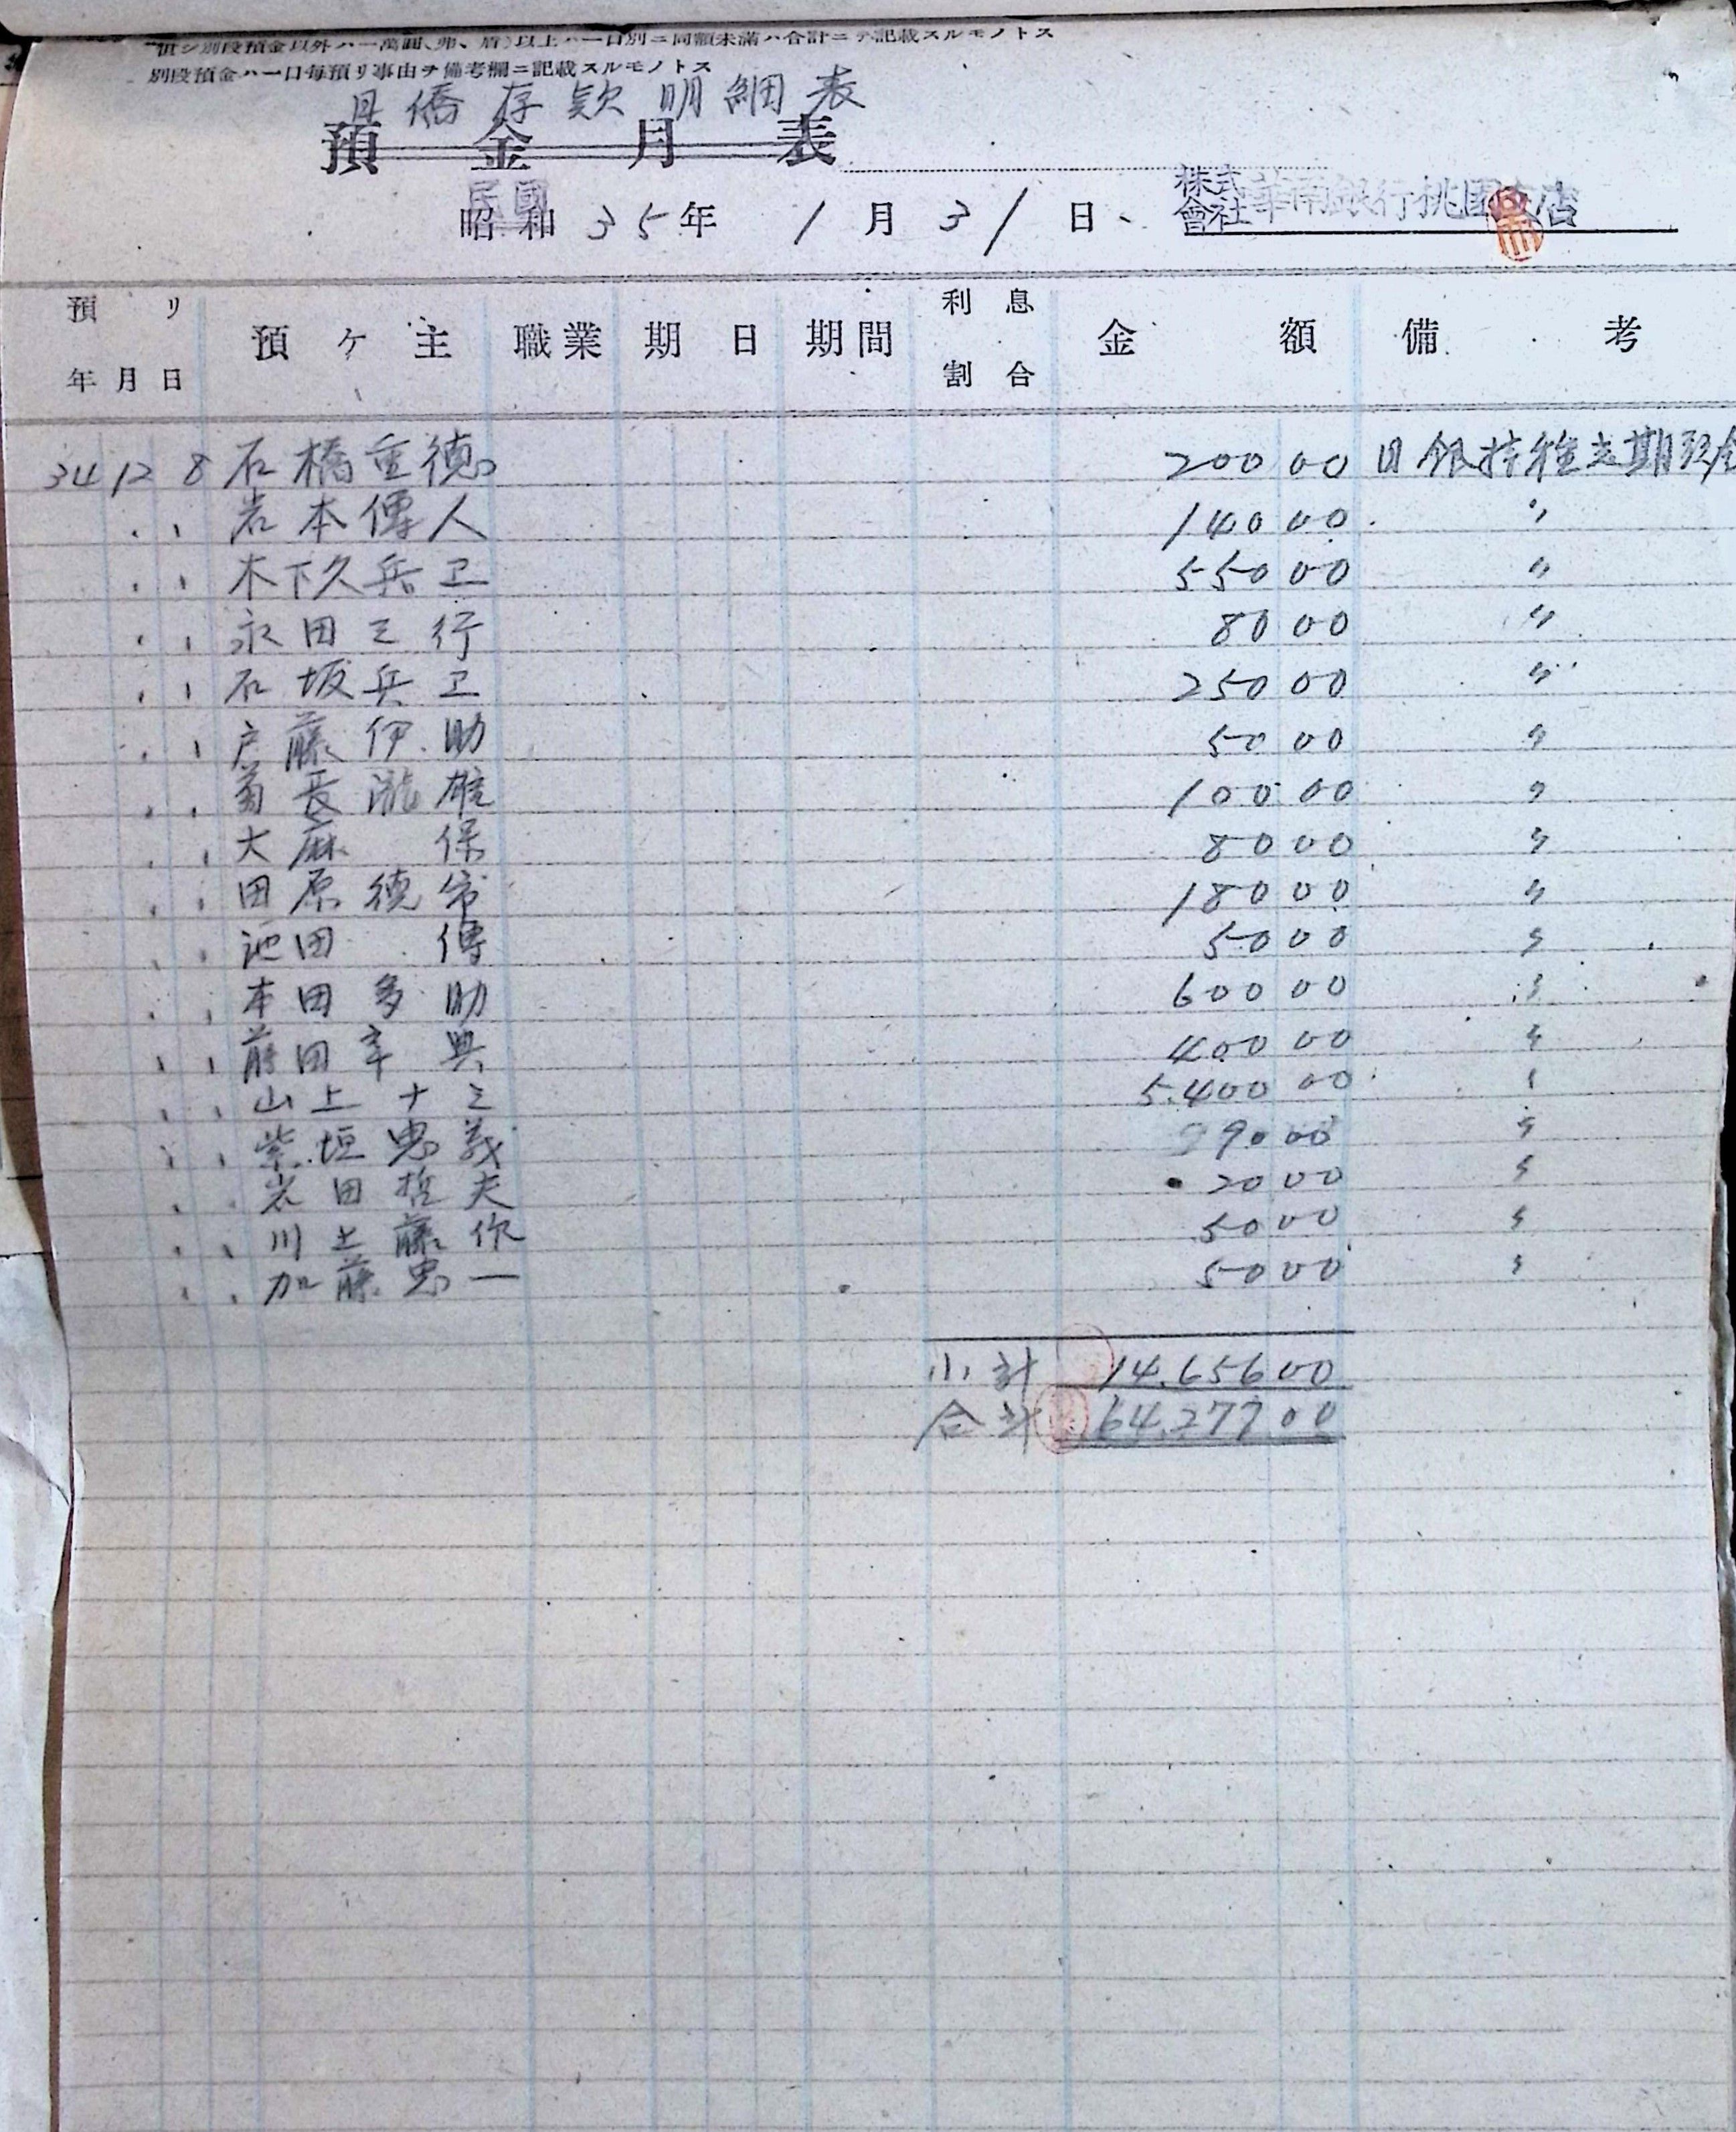 但シ別段預金以外ハ一萬圓(弗、盾)以上ハ一口別ニ同額未滿ハ合計ニテ記載スルモノトス
別段預金ハ一口每預リ事由ヲ備考欄ニ記載スルモノトス
日僑存款明細表
預金月表
民國
昭和 35年 1月31日、 株式會社華南銀行桃園支店
預リ年月日 預ケ主 職業 期日 期間 利息割合 金額 備考
34 12 8 石橋重德 200 00 日銀 定期預金
〃 〃 岩本傳人 140 00 〃
〃 〃 木下久兵卫 550 00 〃
〃 〃 永田三行 80 00 〃
〃 〃 石坂兵卫 250 00 〃
〃 〃 戸藤伊助 50 00 〃
〃 〃 長瀧雄 100 00 〃
〃 〃 大麻保 80 00 〃
〃 〃 田原德 180 00 〃
〃 〃 池田傳 50 00 〃
〃 〃 本田多助 600 00 〃
〃 〃 藤田幸興 400 00 〃
〃 〃 山上十三 5.400 00 〃
〃 〃 柴垣忠義 00 〃
〃 〃 岩田哲夫 20 00 〃
〃 〃 川上藤作 50 00 〃
〃 〃 加藤忠一 50 00 〃
小計 14.656 00
合計 64.277 00